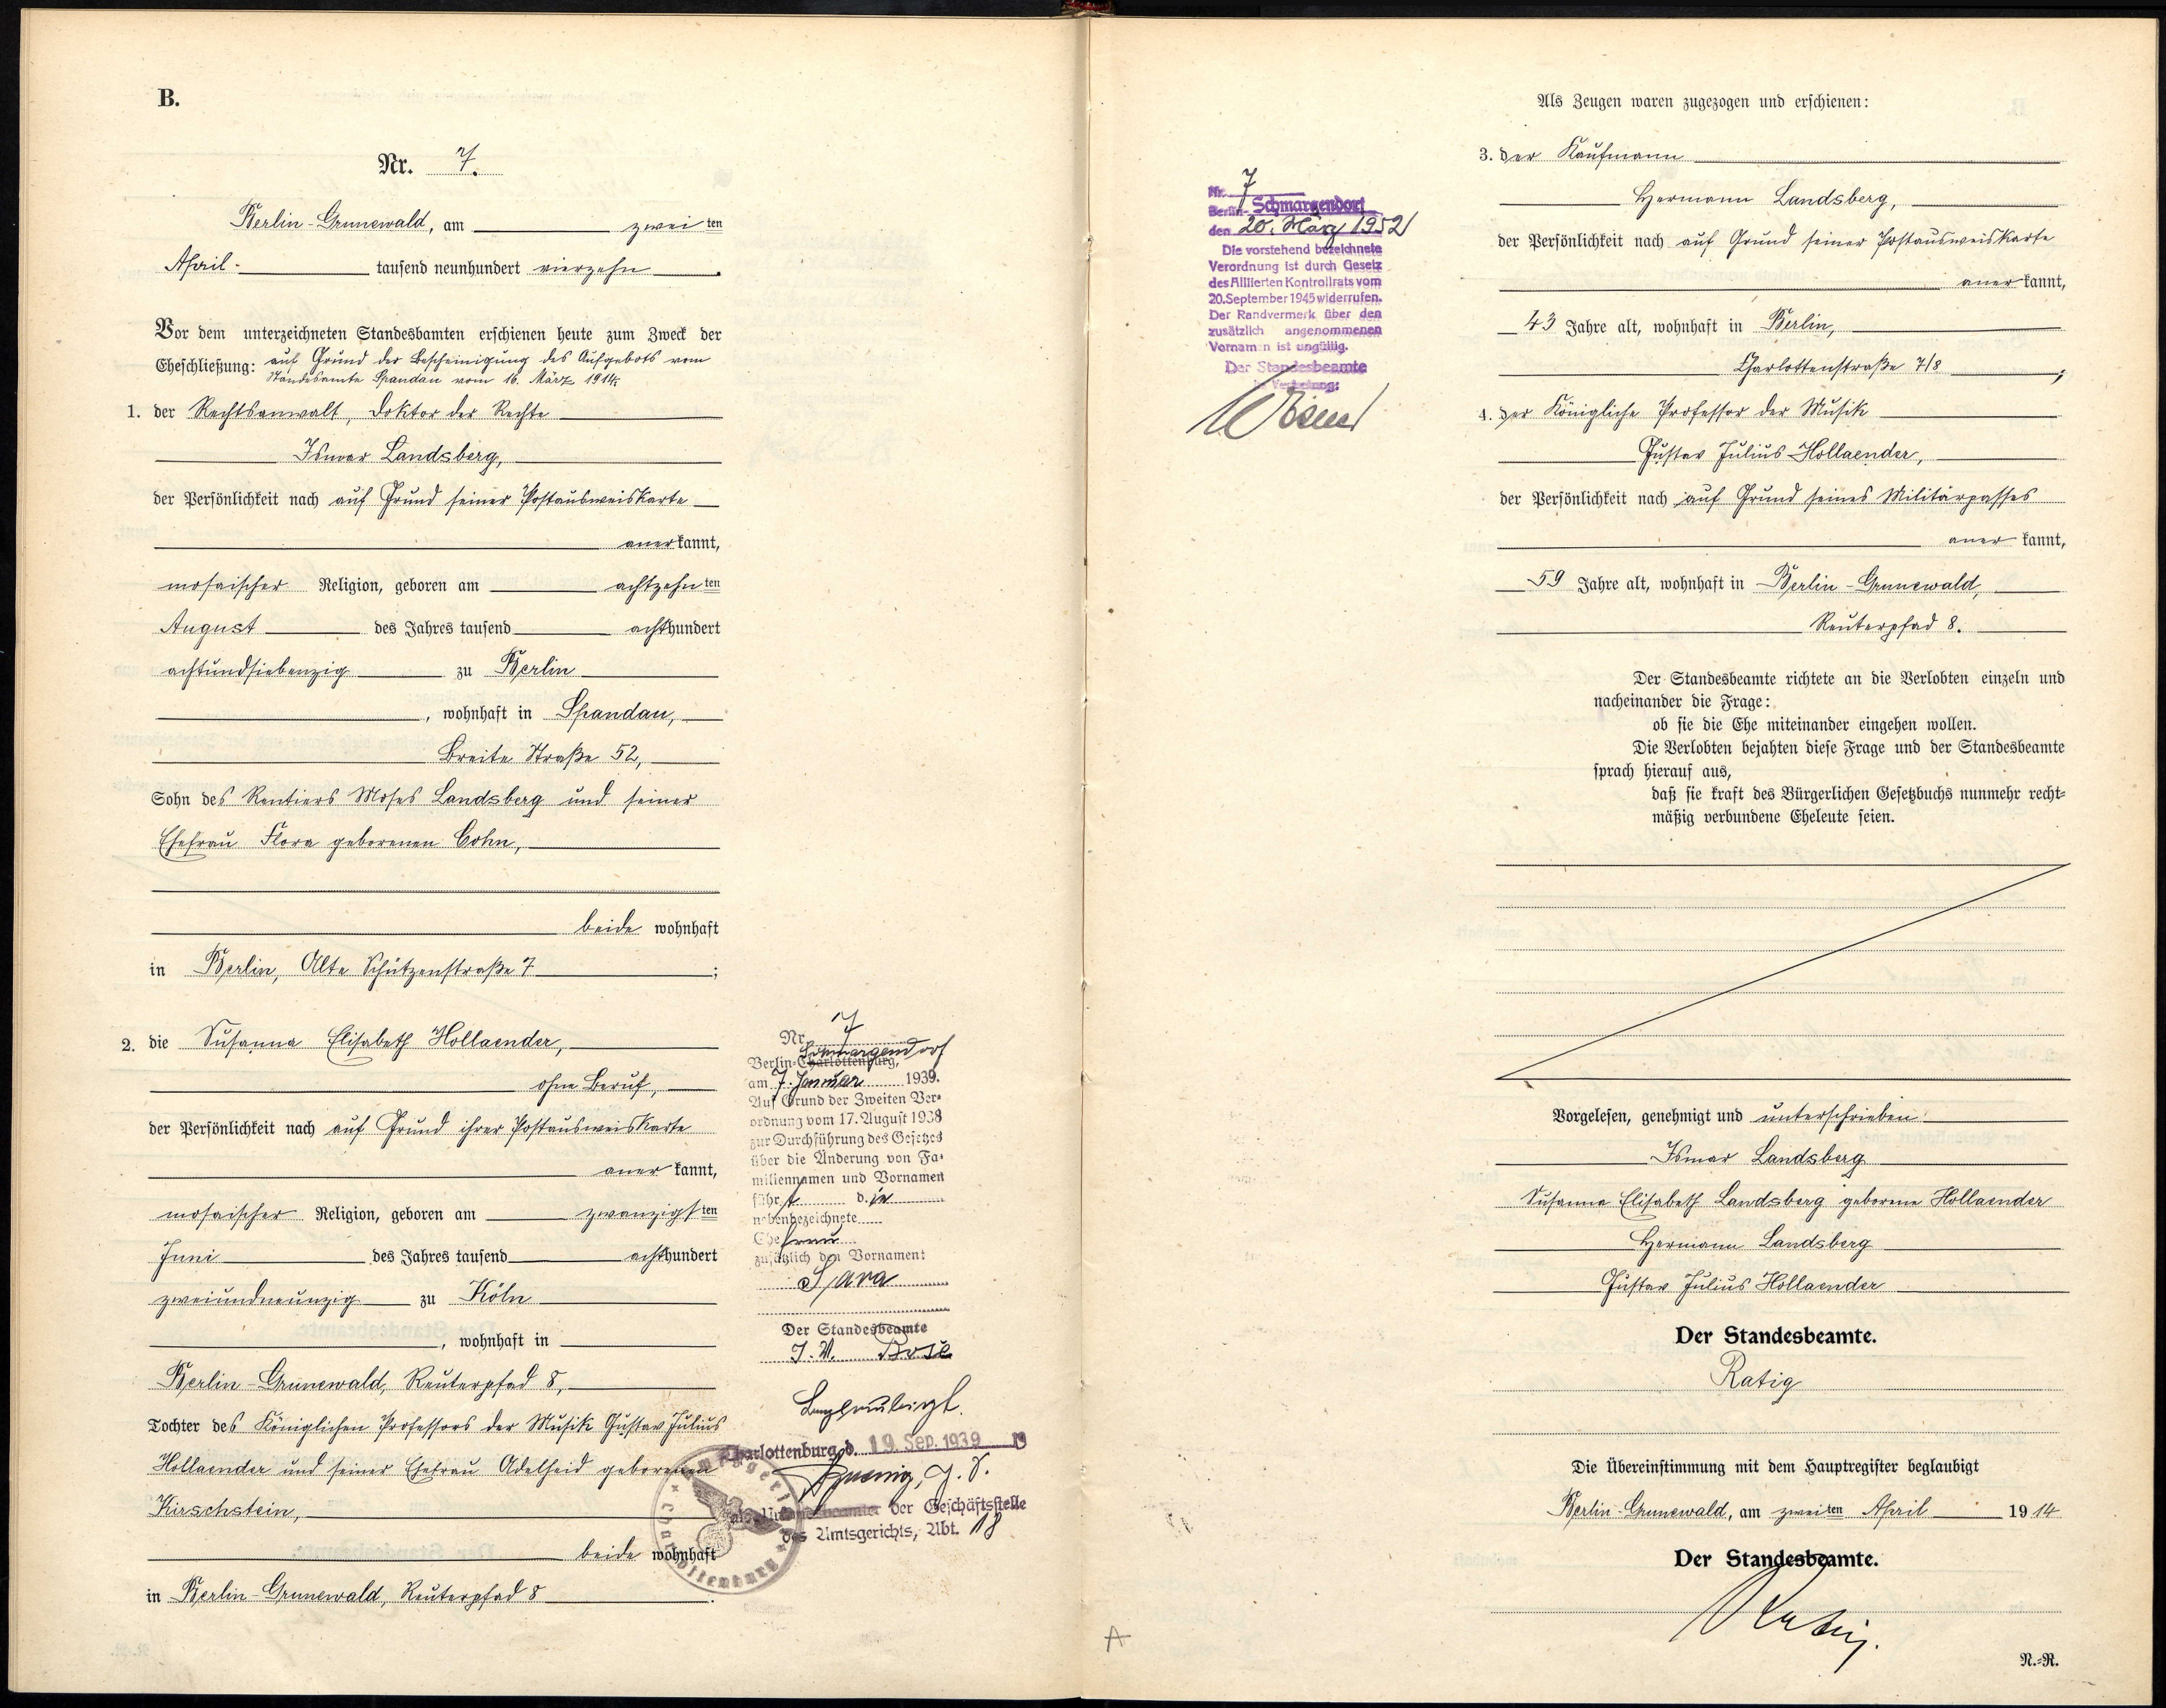 B.
Nr. 7.
Berlin-Grunewald, am zwei ten
April tausend neunhundert vierzehn.
Vor dem unterzeichneten Standesbamten erschienen heute zum Zweck der
Eheschließung: auf Grund der Bescheinigung des Aufgebots vom
Standesamte Spandau vom 16. März 1914:
1. der Rechtsanwalt, Doktor der Rechte
Ismar Landsberg,
der Persönlichkeit nach auf Grund seiner Postausweiskarte
aner kannt,
mosaischer Religion, geboren am achtzehn ten
August des Jahres tausend acht hundert
achtundsiebenzig zu Berlin
, wohnhaft in Spandau,
Breite Straße 52,
Sohn des Rentiers Moses Landsberg und seiner
Ehefrau Flora geborenen Cohn,
beide wohnhaft
in Berlin, Alte Schützenstraße 7;
2. die Susanna Elisabeth Hollaender,
ohne Beruf,
der Persönlichkeit nach auf Grund ihrer Postausweiskarte
aner kannt,
mosaischer Religion, geboren am zwanzigs ten
Juni des Jahres tausend acht hundert
zweiundneunzig zu Köln
, wohnhaft in
Berlin-Grunewald, Reuterpfad 8,
Tochter des Königlichen Professors der Musik Gustav Julius
Hollaender und seiner Ehefrau Adelheid geborenen
Kirschstein,
beide wohnhaft
in Berlin-Grunewald, Reuterpfad 8.
Nr. 7
Schmargendorf
Berlin-Charlottenburg,
am 7. Januar 1939.
Auf Grund der Zweiten Ver-
ordnung vom 17. August 1938
zur Durchführung des Gesetzes
über die Änderung von Fa-
miliennamen und Vornamen
führt die
nebenbezeichnete
Ehefrau
zusätzlich den Vornamen:
Sara
Der Standesbeamte
I. V. Bose
Beglaubigt.
Charlottenburg, d. 19. Sep. 1939
der Geschäftsstelle
des Amtsgerichts, Abt. 18
Amtsgericht Charlottenburg
Nr. 7
Berlin-Schmargendorf
den 20. März 1952
Die vorstehend bezeichnete
Verordnung ist durch Gesetz
des Alliierten Kontrollrats vom
20. September 1945 widerrufen.
Der Randvermerk über den
zusätzlich angenommenen
Vornamen ist ungültig.
Der Standesbeamte
In Vertretung:
Als Zeugen waren zugezogen und erschienen:
3. der Kaufmann
Hermann Landsberg,
der Persönlichkeit nach auf Grund seiner Postausweiskarte
aner kannt,
43 Jahre alt, wohnhaft in Berlin,
Charlottenstraße 7/8;
4. der Königliche Professor der Musik
Gustav Julius Hollaender,
der Persönlichkeit nach auf Grund seines Militärpasses
aner kannt,
59 Jahre alt, wohnhaft in Berlin-Grunewald,
Reuterpfad 8.
Der Standesbeamte richtete an die Verlobten einzeln und
nacheinander die Frage:
ob sie die Ehe miteinander eingehen wollen.
Die Verlobten bejahten diese Frage und der Standesbeamte
sprach hierauf aus,
daß sie kraft des Bürgerlichen Gesetzbuchs nunmehr recht-
mäßig verbundene Eheleute seien.
Vorgelesen, genehmigt und unterschrieben
Ismar Landsberg
Susanna Elisabeth Landsberg geborene Hollaender
Hermann Landsberg
Gustav Julius Hollaender
Der Standesbeamte.
Ratig
Die Übereinstimmung mit dem Hauptregister beglaubigt
Berlin-Grunewald, am zwei ten April 19 14
Der Standesbeamte.
Ratig.
N.-R.
A